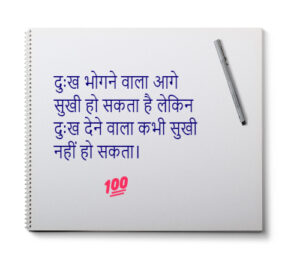 दुःख भोगने वाला आगे
सुखी हो सकता है लेकिन
दुःख देने वाला कभी सुखी
नहीं हो सकता।
100